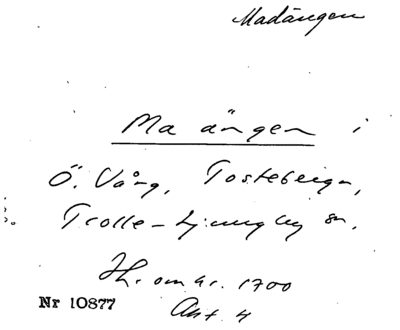 Madängen
Ma ängen i
Ö. Vång, Tosteberga,
Trolle-Ljungby sn.
Th. om kr. 1700
Akt. 4
Nr 10877